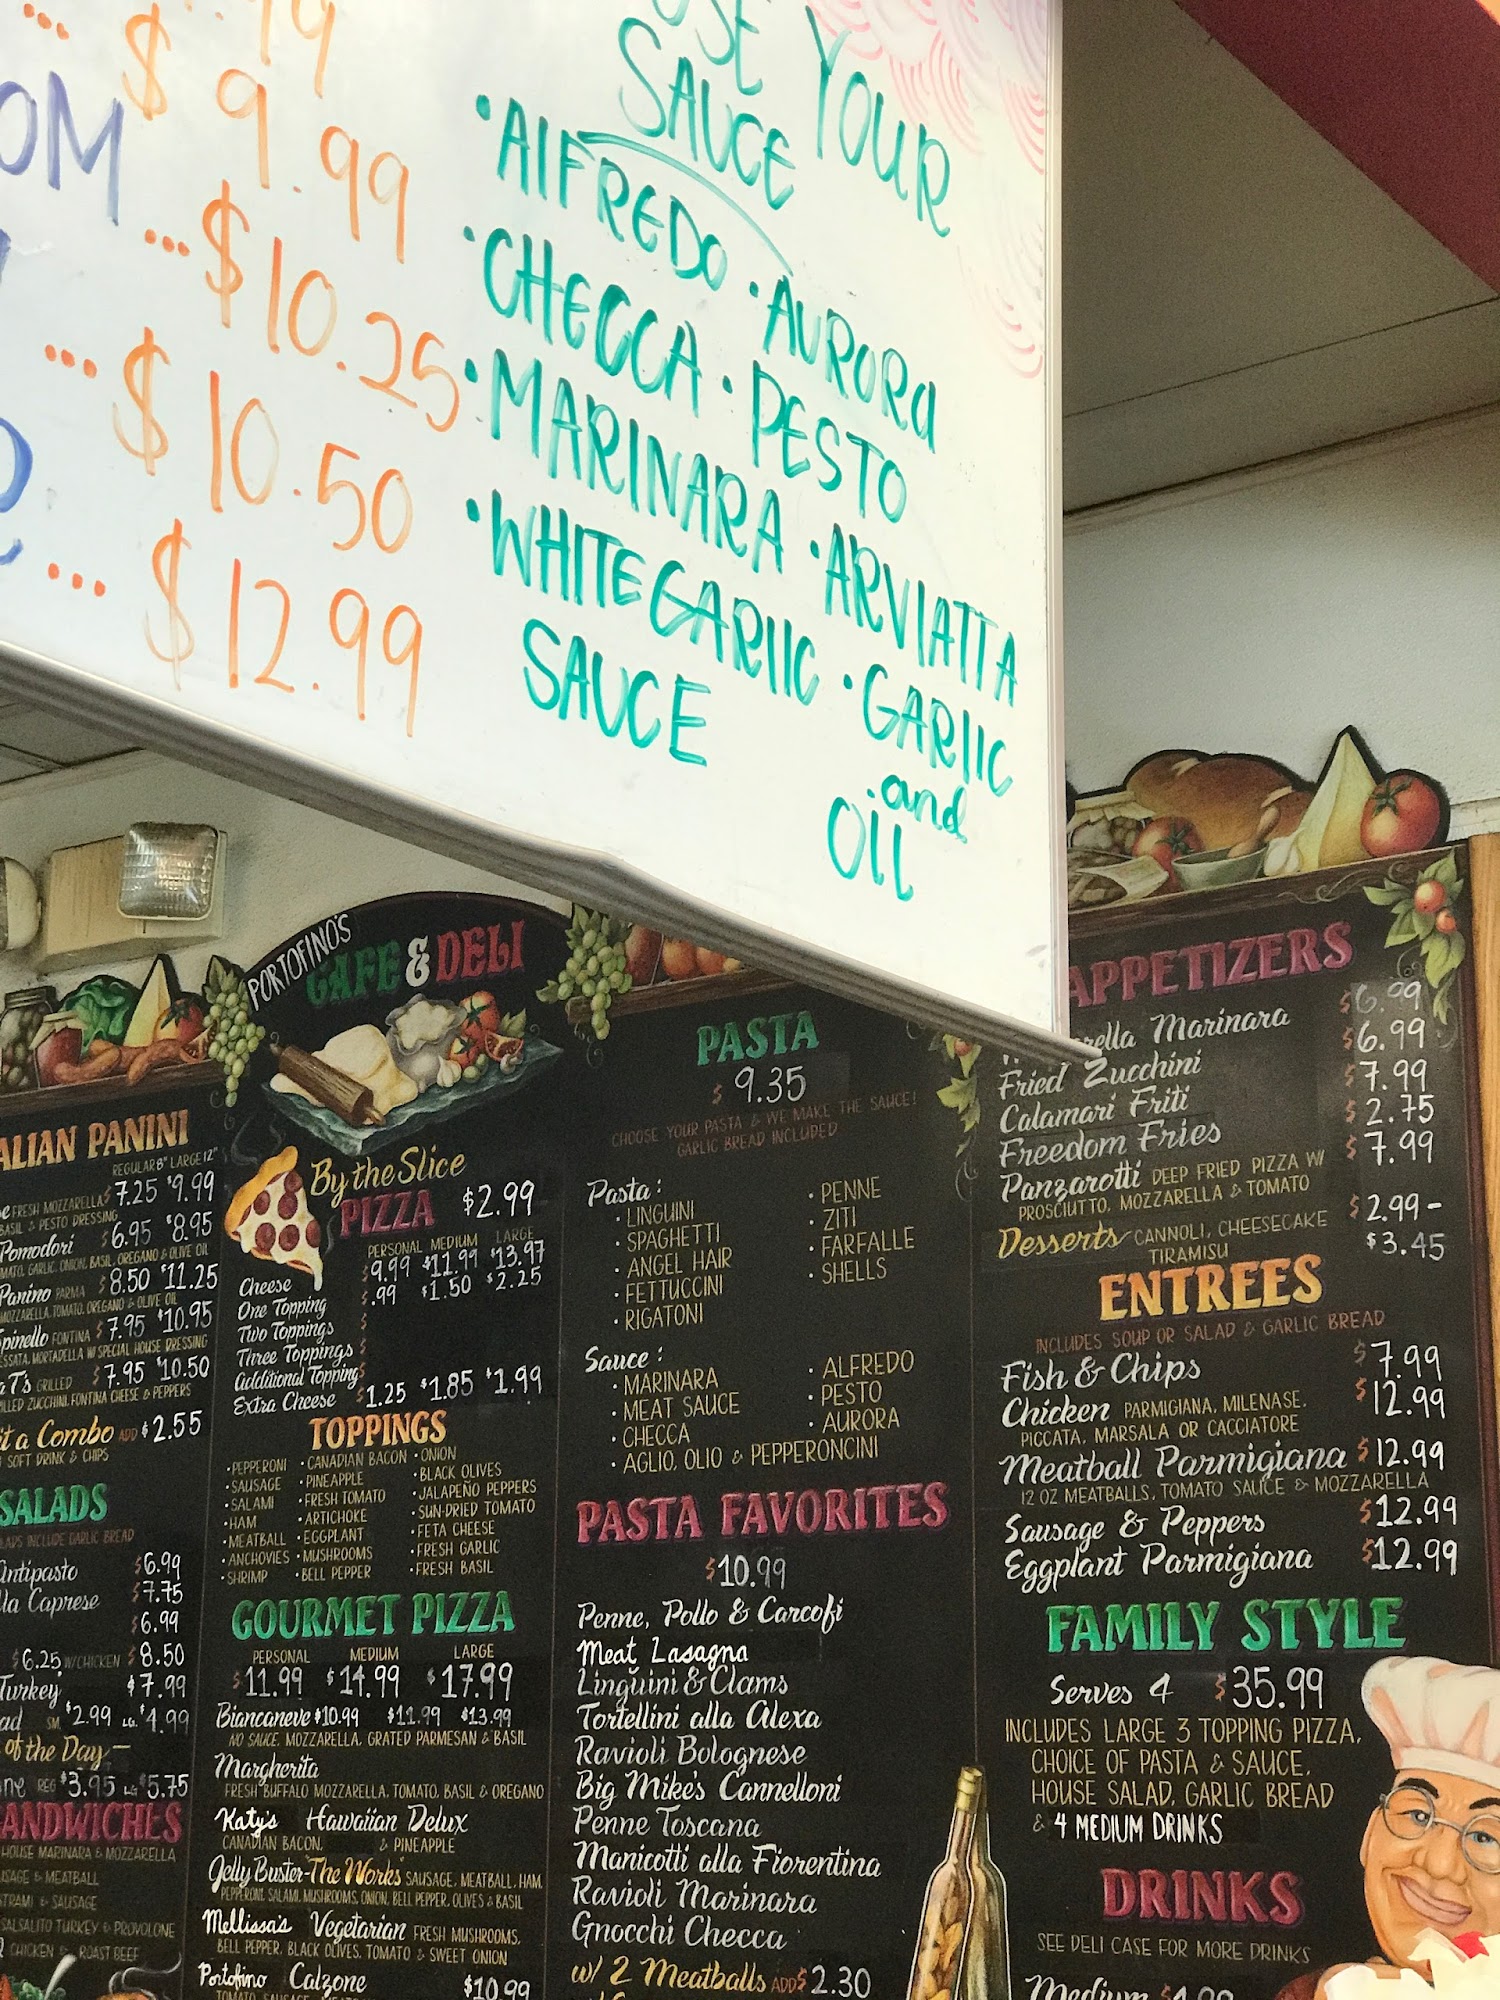 $ .79
OM $ 9.99
...$10.25
...$10.50
... $12.99
YOUR
SAUCE
• AlFREDO • AURORa
• CHECCA • PESTO
• MARINARA • ARVIATTA
• WHITE GARlIC • GARlIC
SAUCE and
OIl
PORTOFINO'S
CAFE & DELI
PANINI
REGULAR 8" LARGE 12"
FRESH MOZZARELLA $7.25 $9.99
BASIL & PESTO DRESSING
Pomodori $6.95 $8.95
GARLIC, ONION, BASIL, OREGANO & OLIVE OIL
Panino PARMA $8.50 $11.25
MOZZARELLA, TOMATO, OREGANO & OLIVE OIL
FONTINA $7.95 $10.95
MORTADELLA W/ SPECIAL HOUSE DRESSING
T's GRILLED $7.95 $10.50
ZUCCHINI, FONTINA CHEESE & PEPPERS
it a Combo ADD $2.55
SOFT DRINK & CHIPS
SALADS
INCLUDE GARLIC BREAD
Antipasto $6.99
Caprese $7.75
$6.99
$6.25 W/CHICKEN $8.50
Turkey $7.99
SM. $2.99 LG. $4.99
of the Day—
REG $3.95 LG $5.75
HOUSE MARINARA & MOZZARELLA
& MEATBALL
& SAUSAGE
SALSALITO TURKEY & PROVOLONE
CHICKEN & ROAST BEEF
By the Slice
PIZZA $2.99
PERSONAL MEDIUM LARGE
Cheese $9.99 $11.99 $13.97
One Topping $.99 $1.50 $2.25
Two Toppings $
Three Toppings $
Additional Topping $
Extra Cheese $1.25 $1.85 $1.99
TOPPINGS
• PEPPERONI • CANADIAN BACON • ONION
• SAUSAGE • PINEAPPLE • BLACK OLIVES
• SALAMI • FRESH TOMATO • JALAPEÑO PEPPERS
• HAM • ARTICHOKE • SUN-DRIED TOMATO
• MEATBALL • EGGPLANT • FETA CHEESE
• ANCHOVIES • MUSHROOMS • FRESH GARLIC
• SHRIMP • BELL PEPPER • FRESH BASIL
GOURMET PIZZA
PERSONAL MEDIUM LARGE
$11.99 $14.99 $17.99
Biancaneve $10.99 $11.99 $13.99
NO SAUCE, MOZZARELLA, GRATED PARMESAN & BASIL
Margherita
FRESH BUFFALO MOZZARELLA, TOMATO, BASIL & OREGANO
Katy's Hawaiian Delux
CANADIAN BACON, & PINEAPPLE
Jelly Buster "The Works" SAUSAGE, MEATBALL, HAM,
PEPPERONI, SALAMI, MUSHROOMS, ONION, BELL PEPPER, OLIVES & BASIL
Mellissa's Vegetarian FRESH MUSHROOMS,
BELL PEPPER, BLACK OLIVES, TOMATO & SWEET ONION
Portofino Calzone $10.99
PASTA
$ 9.35
CHOOSE YOUR PASTA & WE MAKE THE SAUCE!
GARLIC BREAD INCLUDED
Pasta:
• LINGUINI • PENNE
• SPAGHETTI • ZITI
• ANGEL HAIR • FARFALLE
• FETTUCCINI • SHELLS
• RIGATONI
Sauce:
• MARINARA • ALFREDO
• MEAT SAUCE • PESTO
• CHECCA • AURORA
• AGLIO, OLIO & PEPPERONCINI
PASTA FAVORITES
$10.99
Penne, Pollo & Carcofi
Meat Lasagna
Linguini & Clams
Tortellini alla Alexa
Ravioli Bolognese
Big Mike's Cannelloni
Penne Toscana
Manicotti alla Fiorentina
Ravioli Marinara
Gnocchi Checca
w/ 2 Meatballs ADD $2.30
APPETIZERS
Marinara $6.99
Fried Zucchini $6.99
Calamari Friti $7.99
Freedom Fries $2.75
Panzarotti DEEP FRIED PIZZA W/ $7.99
PROSCIUTTO, MOZZARELLA & TOMATO
Desserts CANNOLI, CHEESECAKE $2.99-
TIRAMISU $3.45
ENTREES
INCLUDES SOUP OR SALAD & GARLIC BREAD
Fish & Chips $7.99
Chicken PARMIGIANA, MILENASE, $12.99
PICCATA, MARSALA OR CACCIATORE
Meatball Parmigiana $12.99
12 OZ MEATBALLS, TOMATO SAUCE & MOZZARELLA
Sausage & Peppers $12.99
Eggplant Parmigiana $12.99
FAMILY STYLE
Serves 4 $35.99
INCLUDES LARGE 3 TOPPING PIZZA,
CHOICE OF PASTA & SAUCE,
HOUSE SALAD, GARLIC BREAD
& 4 MEDIUM DRINKS
DRINKS
SEE DELI CASE FOR MORE DRINKS
Medium